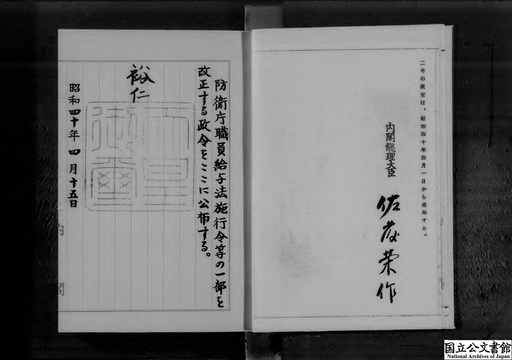 二号の規定は、昭和四十年四月一日から適用する。
内閣総理大臣
佐藤栄作
防衛庁職員給与法施行令等の一部を
改正する政令をここに公布する。
裕仁
天皇
御璽
昭和四十年四月十五日
内閣
国立公文書館
National Archives of Japan